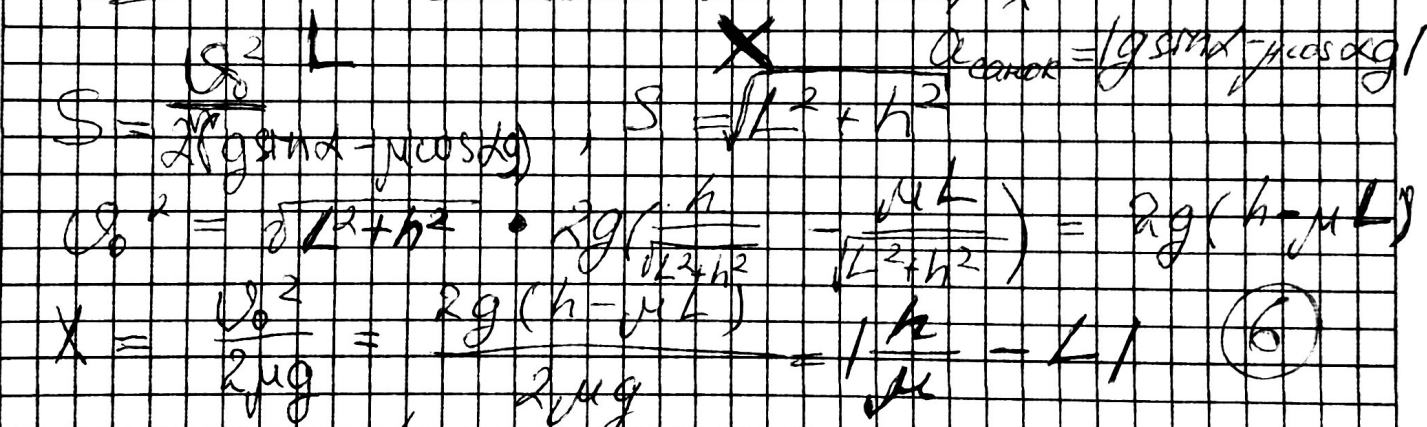 L X a санок = |g sinα - μcosαg|
S = v₀² / 2(g sinα - μcosαg) , S = √(L² + h²)
v₀² = √(L² + h²) • 2g(h / √(L² + h²) - μL / √(L² + h²)) = 2g(h - μL)
X = v₀² / 2μg = 2g(h - μL) / 2μg = |h/μ - L| 6